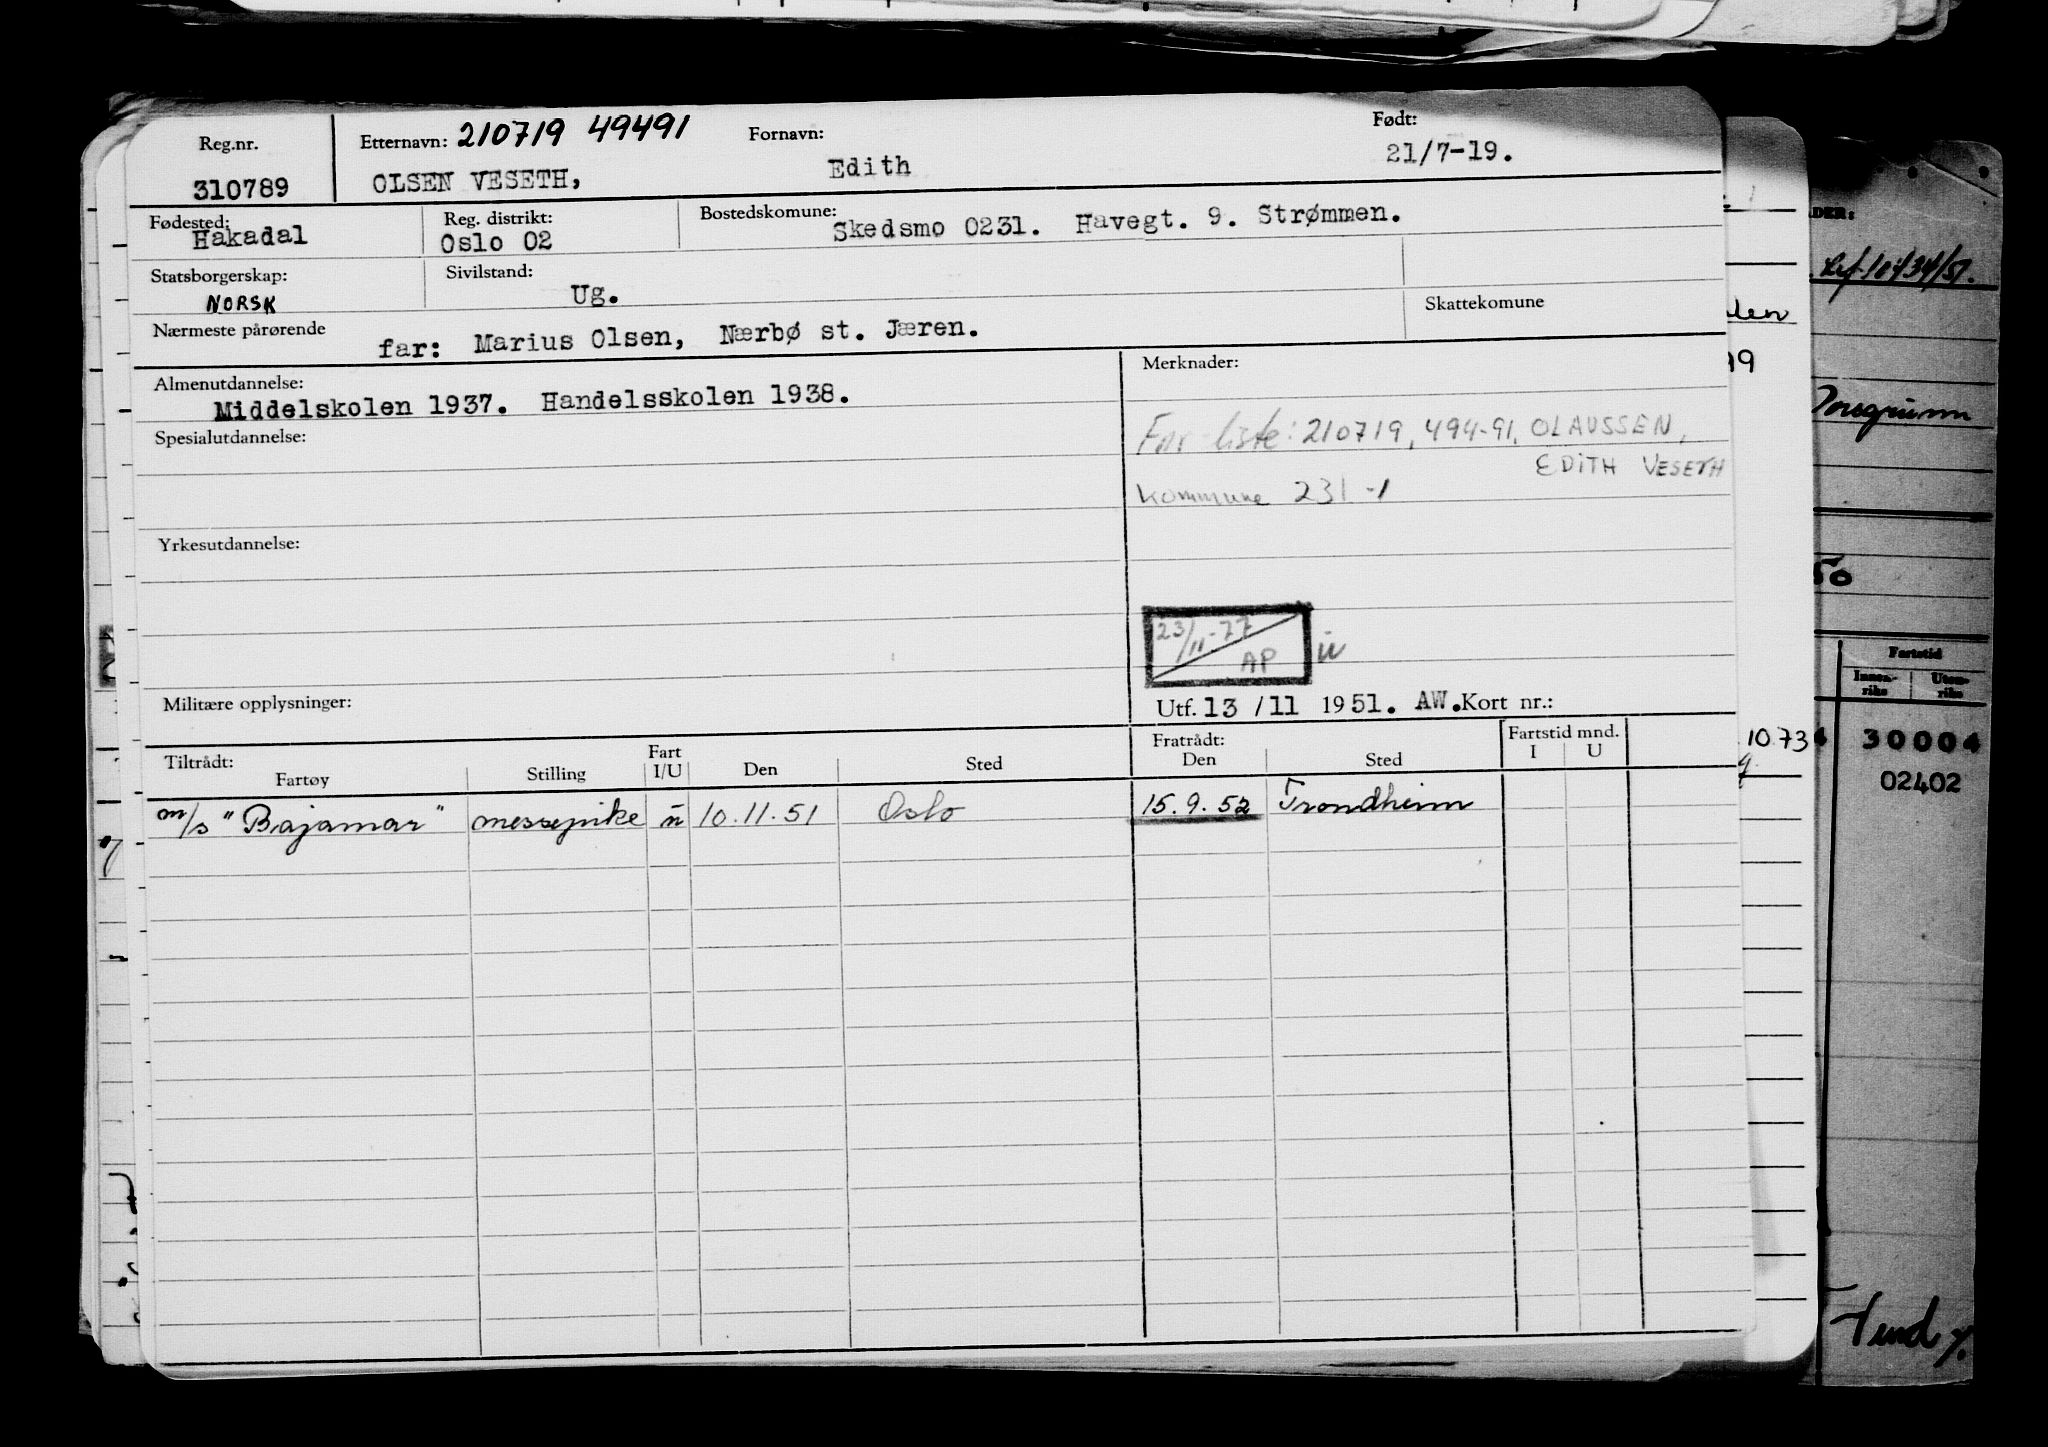 Reg.nr. Etternavn: 210719 49491 Fornavn: Født:
310789 OLSEN VESETH, Edith 21/7-19.
Fødested: Reg. distrikt: Bostedskomune:
Hakadal Oslo 02 Skedsmo 0231. Havegt. 9. Strømmen.
Statsborgerskap: Sivilstand:
NORSK Ug. Skattekomune
Nærmeste pårørende far: Marius Olsen, Nærbø st. Jæren.
Almenutdannelse: Merknader:
Middelskolen 1937. Handelsskolen 1938.
Spesialutdannelse: liste: 210719, 494-91, OLAUSSEN,
EDITH VESETH
Kommune 231-1
Yrkesutdannelse:
23/11-77
AP ü
Militære opplysninger: Utf. 13 / 11 1951. AW. Kort nr.:
Tiltrådt: Fart Fratrådt: Fartstid mnd.
Fartøy Stilling I/U Den Sted Den Sted I U
m/s "Bajamar" messepike ü 10.11.51 Oslo 15.9.52 Trondheim
10.73
50
Fartstid
Innen-riks Uten-riks
30004
02402